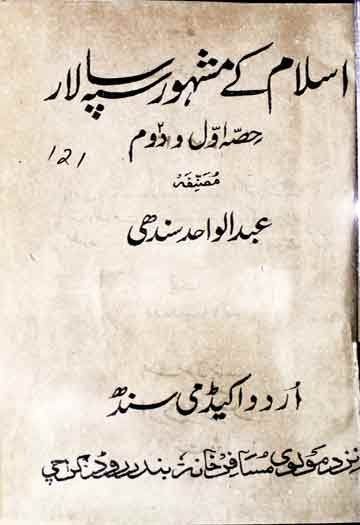 اسلام کے مشہور سپہ سالار
حصّہ اوّل و دوم
121
مصنفہ
عبدالواحد سندھی
اُردو اکیڈمی سندھ
نزد مولوی مسافر خانہ بندر روڈ کراچی